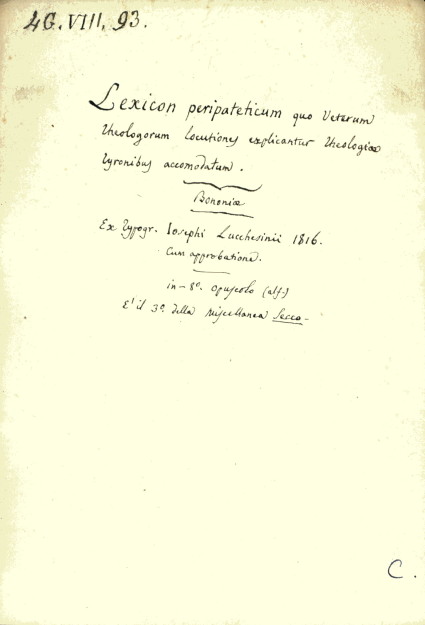 4G.VIII, 93.
Lexicon peripateticum quo Veterum
Theologorum locutiones explicantur Theologiæ
Tyronibus accomodatum.
Bononiæ
Ex Typogr. Iosephi Lucchesinii 1816.
Cum approbatione.
in-8º. opuscolo (alf:)
E' il 3º. della Miscellanea Secco-
C.